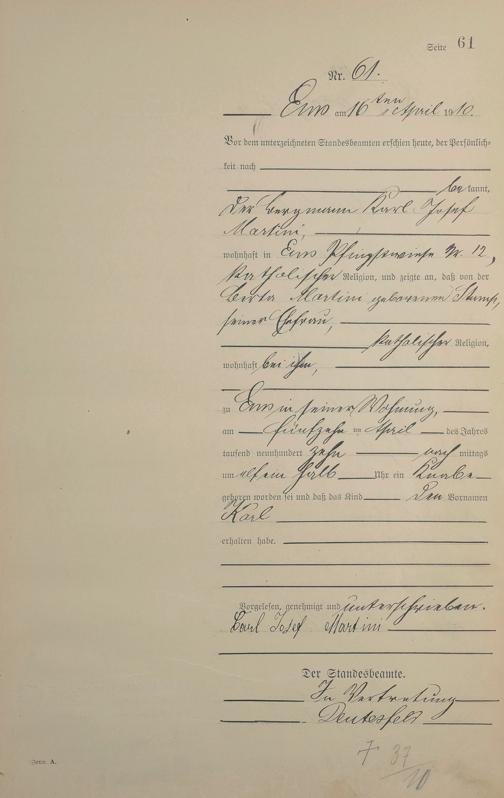 Seite 61
Nr. 61.
Ems am 16ten April 1910.
Vor dem unterzeichneten Standesbeamten erschien heute, der Persönlich-
keit nach
bekannt,
der Bergmann Karl Josef
Martini,
wohnhaft in Ems Pfingstwiese Nr. 12,
katholischer Religion, und zeigte an, daß von der
Berta Martini geborenen Stump,
seiner Ehefrau,
katholischer Religion,
wohnhaft bei ihm,
zu Ems in seiner Wohnung,
am fünfzehn ten April des Jahres
tausend neunhundert zehn nach mittags
um elf ein halb Uhr ein Knabe
geboren worden sei und daß das Kind den Vornamen
Karl
erhalten habe.
Vorgelesen, genehmigt und unterschrieben.
Carl Josef Martini
Der Standesbeamte.
In Vertretung
Form. A.
37
10